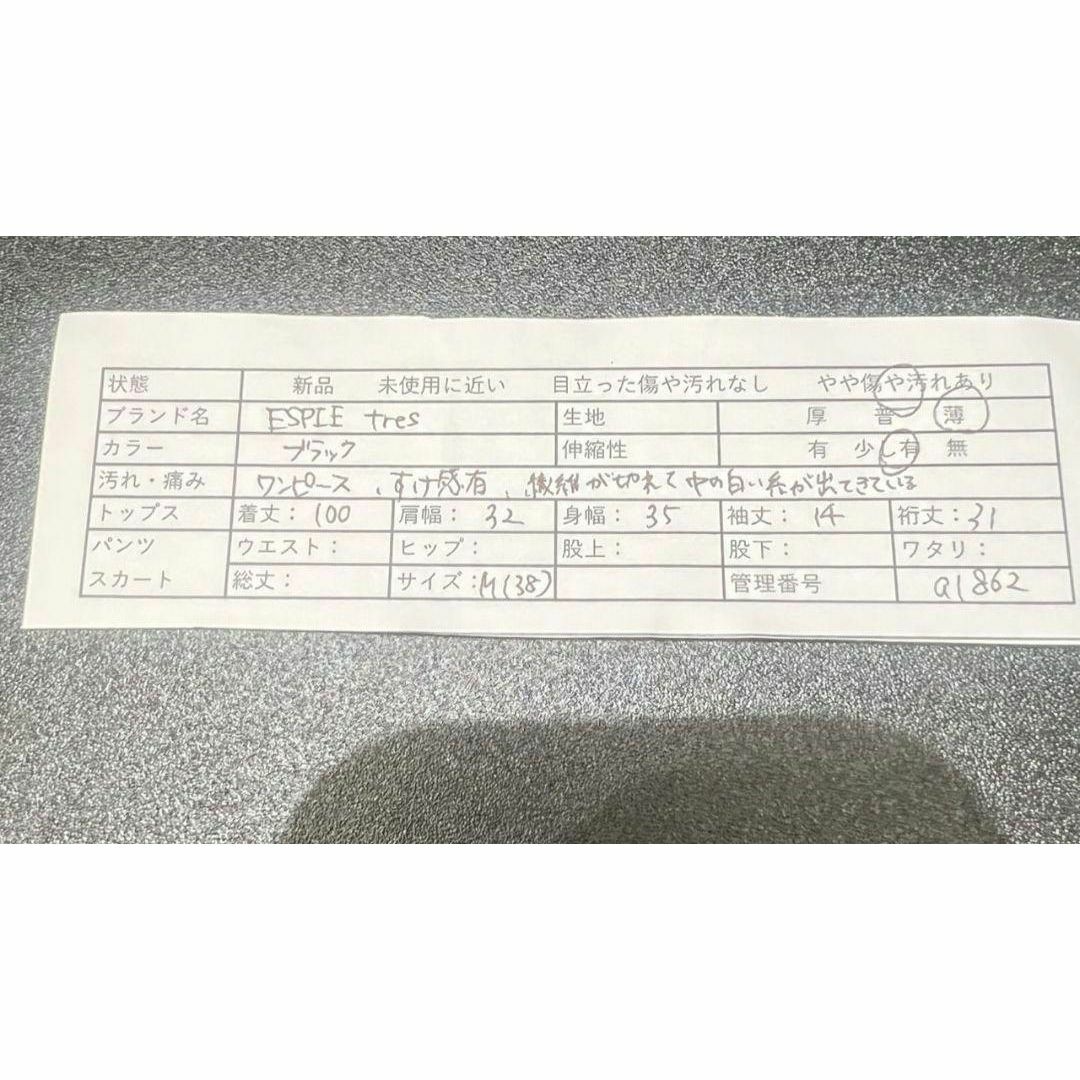 状態 新品 未使用に近い 目立った傷や汚れなし やや傷や汚れあり
ブランド名 ESPIE tres 生地 厚 普 薄
カラー ブラック 伸縮性 有 少し有 無
汚れ・痛み ワンピース、すけ感有、繊維が切れて中の白い糸が出てきている
トップス 着丈：100 肩幅：32 身幅：35 袖丈：14 裄丈：31
パンツ ウエスト： ヒップ： 股上： 股下： ワタリ：
スカート 総丈： サイズ：M(38) 管理番号 a1862